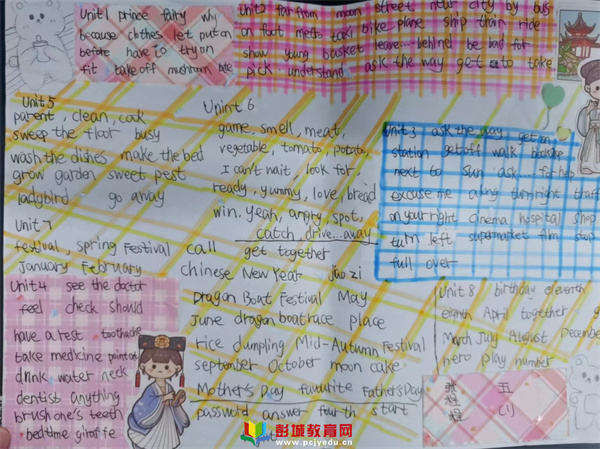 Unit1 prince fairy why
because clothes let put on
before have to try on
fit take off mushroom bite
Unit2 far from moon street near city by bus
on foot metro taxi bike plane ship train ride
show young basket leave...behind be bad for
pick understand ask the way get to take
Unit5
parent, clean, cook
sweep the floor busy
wash the dishes make the bed
grow garden sweet pest
ladybird go away
Uninit 6
game, smell, meat,
vegetable, tomato, potato,
I can't wait, look for,
ready, yummy, love, bread
win, yeah, angry, spot,
catch, drive...away
Unit3 ask the way get
station get off walk
next to sun ask...for help
excuse me along turn right
on your right cinema hospital shop
turn left supermarket film stop
full over
Unit7
festival, spring Festival call get together
January February Chinese New Year jiao zi
Dragon Boat Festival May
June dragon boat race place
rice dumpling Mid-Autumn Festival
september October moon cake
Mother's Day favourite Father's Day
password answer fourth start
Unit4 see the doctor
feel check should
have a rest toothache
take medicine point at
drink water neck
dentist anything
brush one's teeth
bedtime giraffe
Unit8 birthday eleventh
eighth April together
March July August December
hero play number
五
彭城教育网
www.pcjyedu.cn